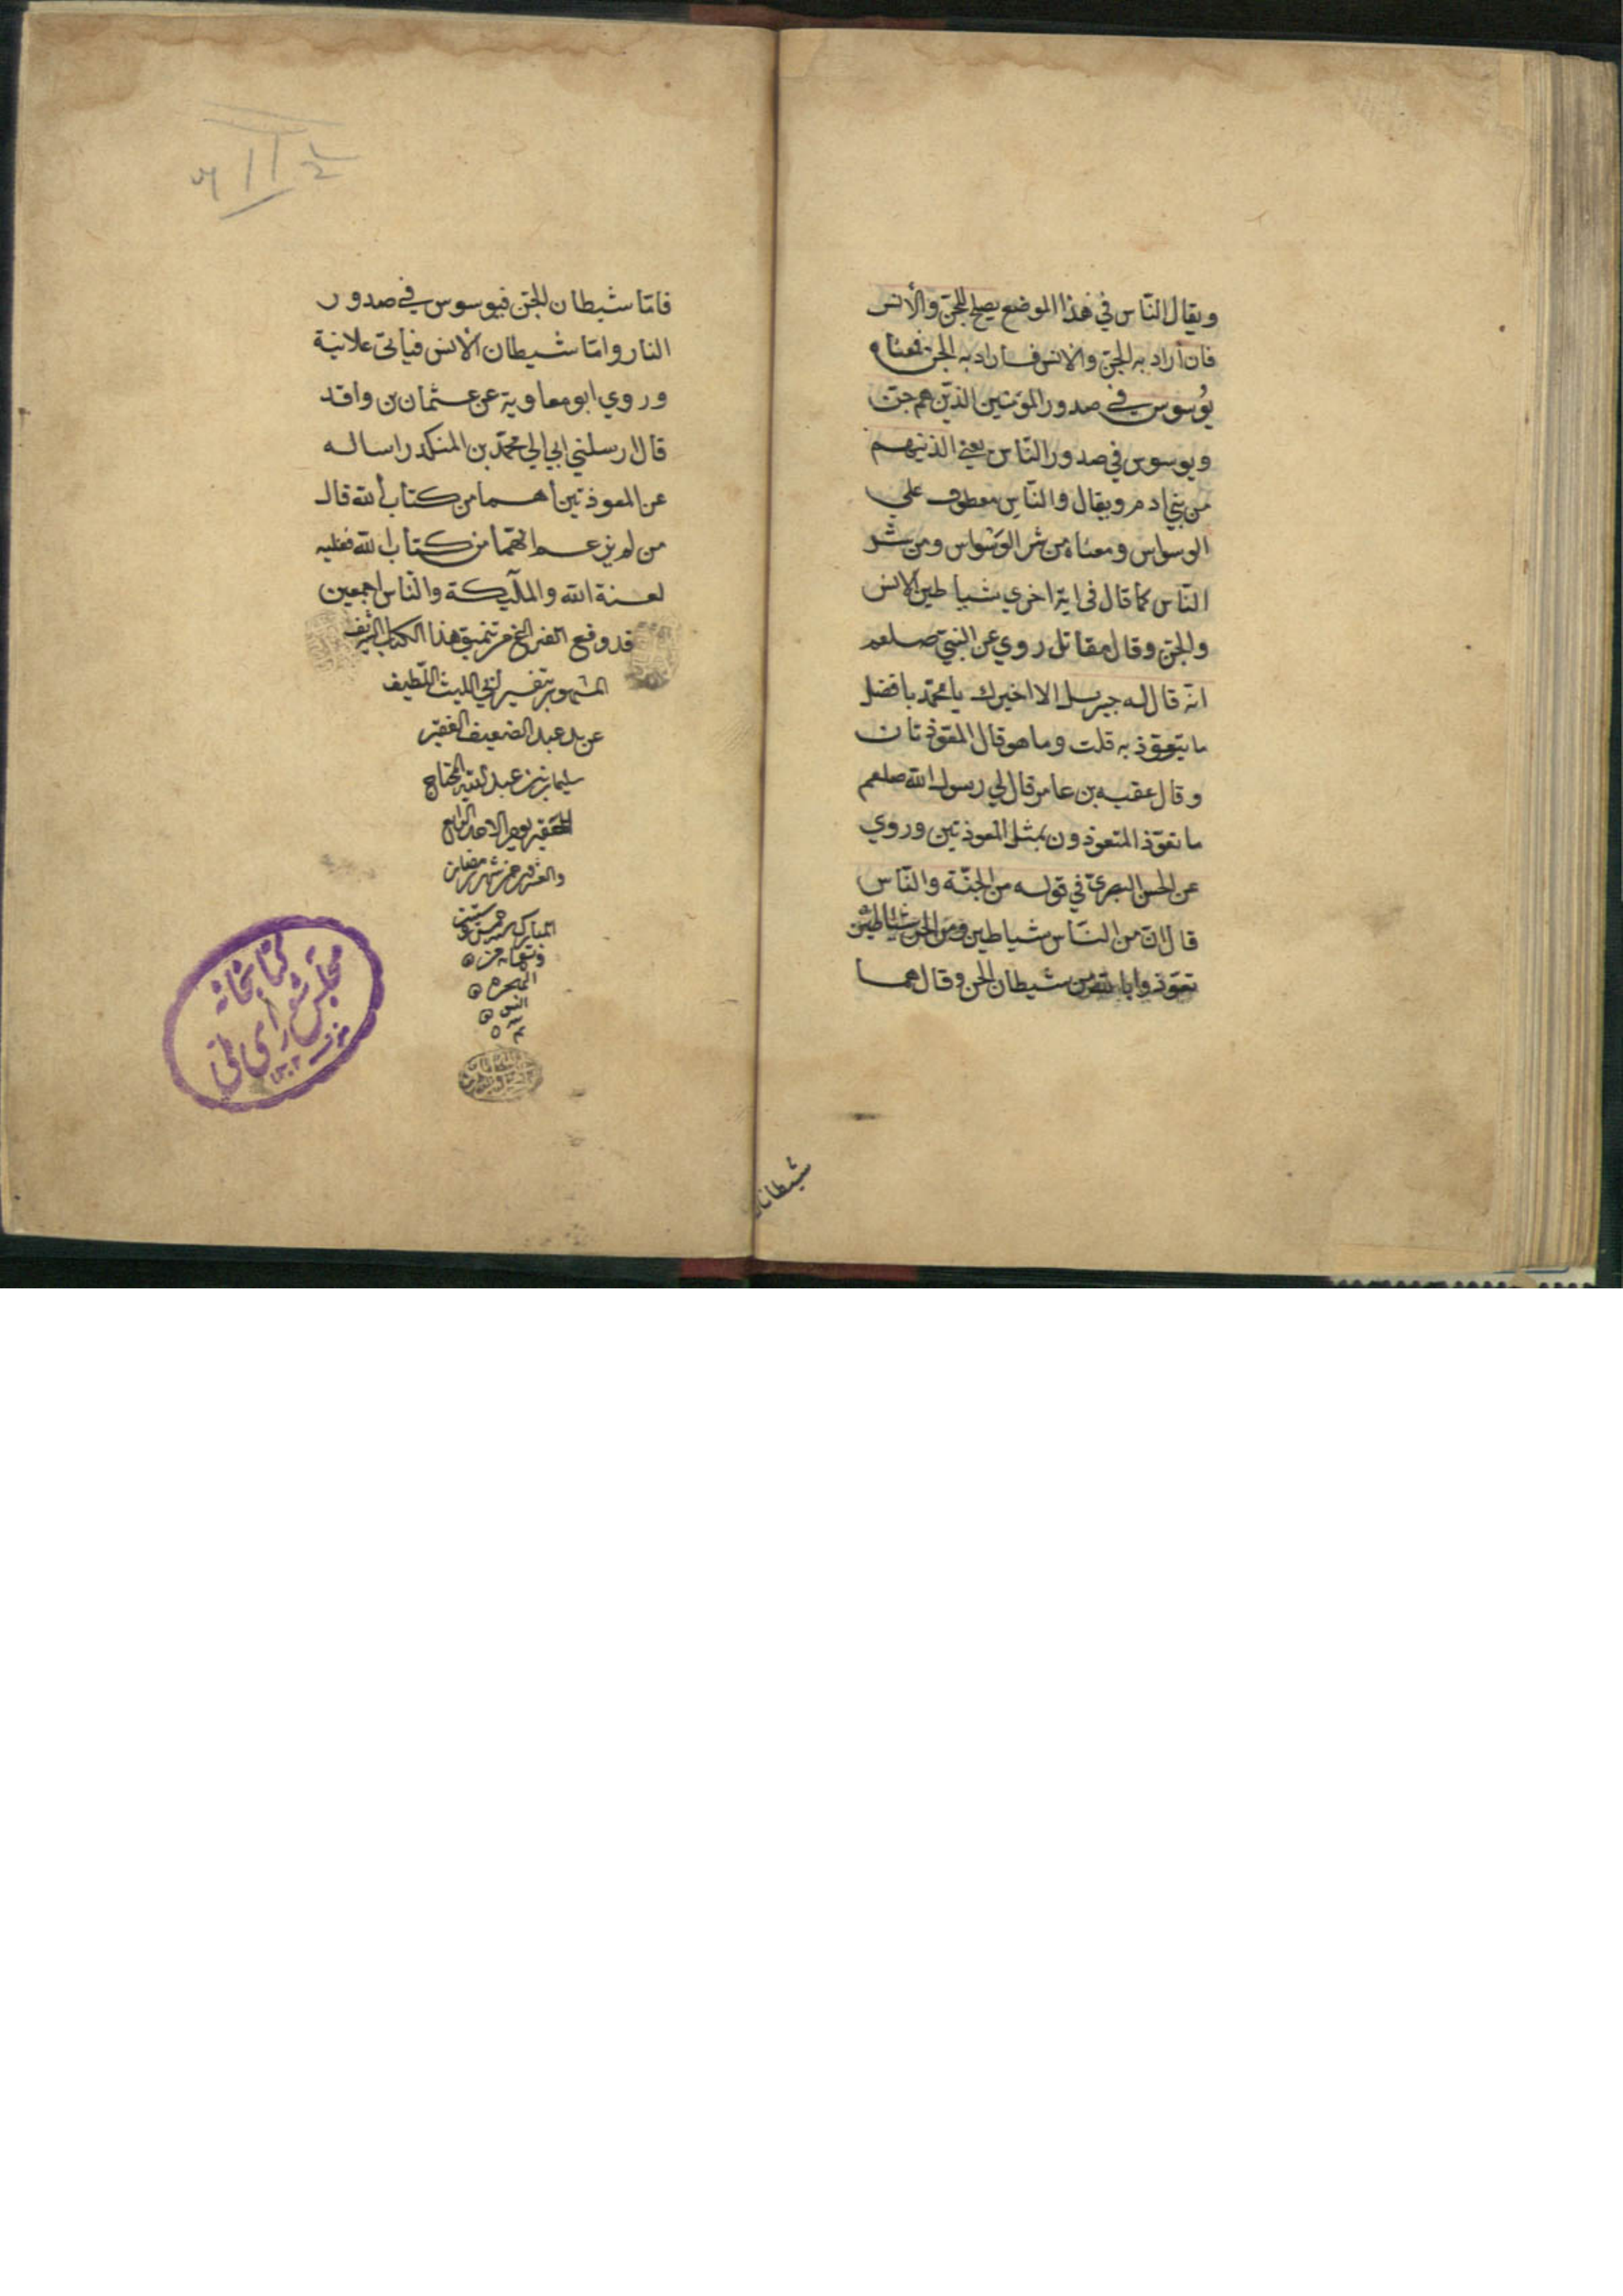 ويقال الناس في هذا الموضع يصلح للجن والأنس
فان اراد به الجن والانس فاراد به الجن فمعناه
يُوسوس في صدور المؤمنين الذين هم جن
ويوسوس في صدور الناس يعني الذينهم
من بني ادم ويقال والناس معطوف علي
الوسواس ومعناه من شر الوسواس ومن شر
الناس كما قال في اية اخري شياطين الانس
والجن وقال مقاتل روي عن النبي صلعم
انه قال له جبريل الا اخبرك يا محمد بافضل
ما يتعوذ به قلت وما هو قال المعوذتان
وقال عقبه بن عامر قال لي رسول الله صلعم
ما تعوذ المتعوذون بمثل المعوذتين وروي
عن الحسن البصري في قوله من الجنة والناس
قال ان من الناس شياطين ومن الجن شياطين
تعوذوا بالله من شيطان الجن وقال هما
شيطانان
فامّا شيطان الجن فيوسوس في صدور
الناس وامّا شيطان الانس فيأتي علانية
وروي ابو معاوية عن عثمان بن واقد
قال ارسلني ابي الي محمد بن المنكدر اساله
عن المعوذتين أهما من كتاب الله قال
من لم يزعم انهما من كتاب الله فعليه
لعنة الله والملآيكة والناس اجمعين
قد وقع الفراغ من تنميق هذا الكتاب الشريف
المشهور بتفسير ابي الليث اللطيف
عن يد عبد الضعيف الفقير
سليمان بن عبد الله المحتاج
الحقير يوم الاحد الرابع
والعشرين من شهر رمضان
المبارك سنة خمس وستين
وتسعمائه من
الهجرة
النبي
كتابخانه
مجلس شورای ملی
١٣٠٢